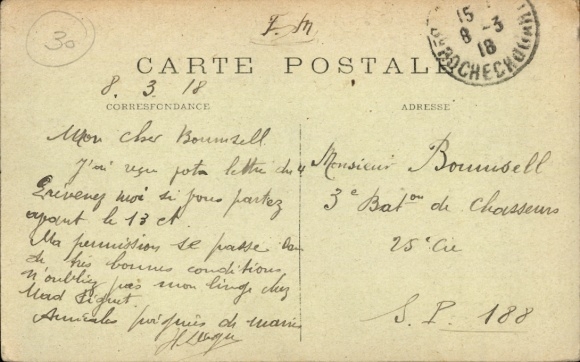 30
F. M
15
8 - 3
18
ROCHECHOUART
CARTE POSTALE
8. 3. 18
CORRESPONDANCE
Mon cher Boumsell
J'ai reçu vota lettre du 4
Prévenez moi si vous partez
avant le 13 ct.
Ma permission se passe dans
de très bonnes conditions
N'oubliez pas mon linge chez
Mad
Amicales poignées de mains
ADRESSE
Monsieur Boumsell
3e Baton de Chasseurs
25e Cie
S. P. 188